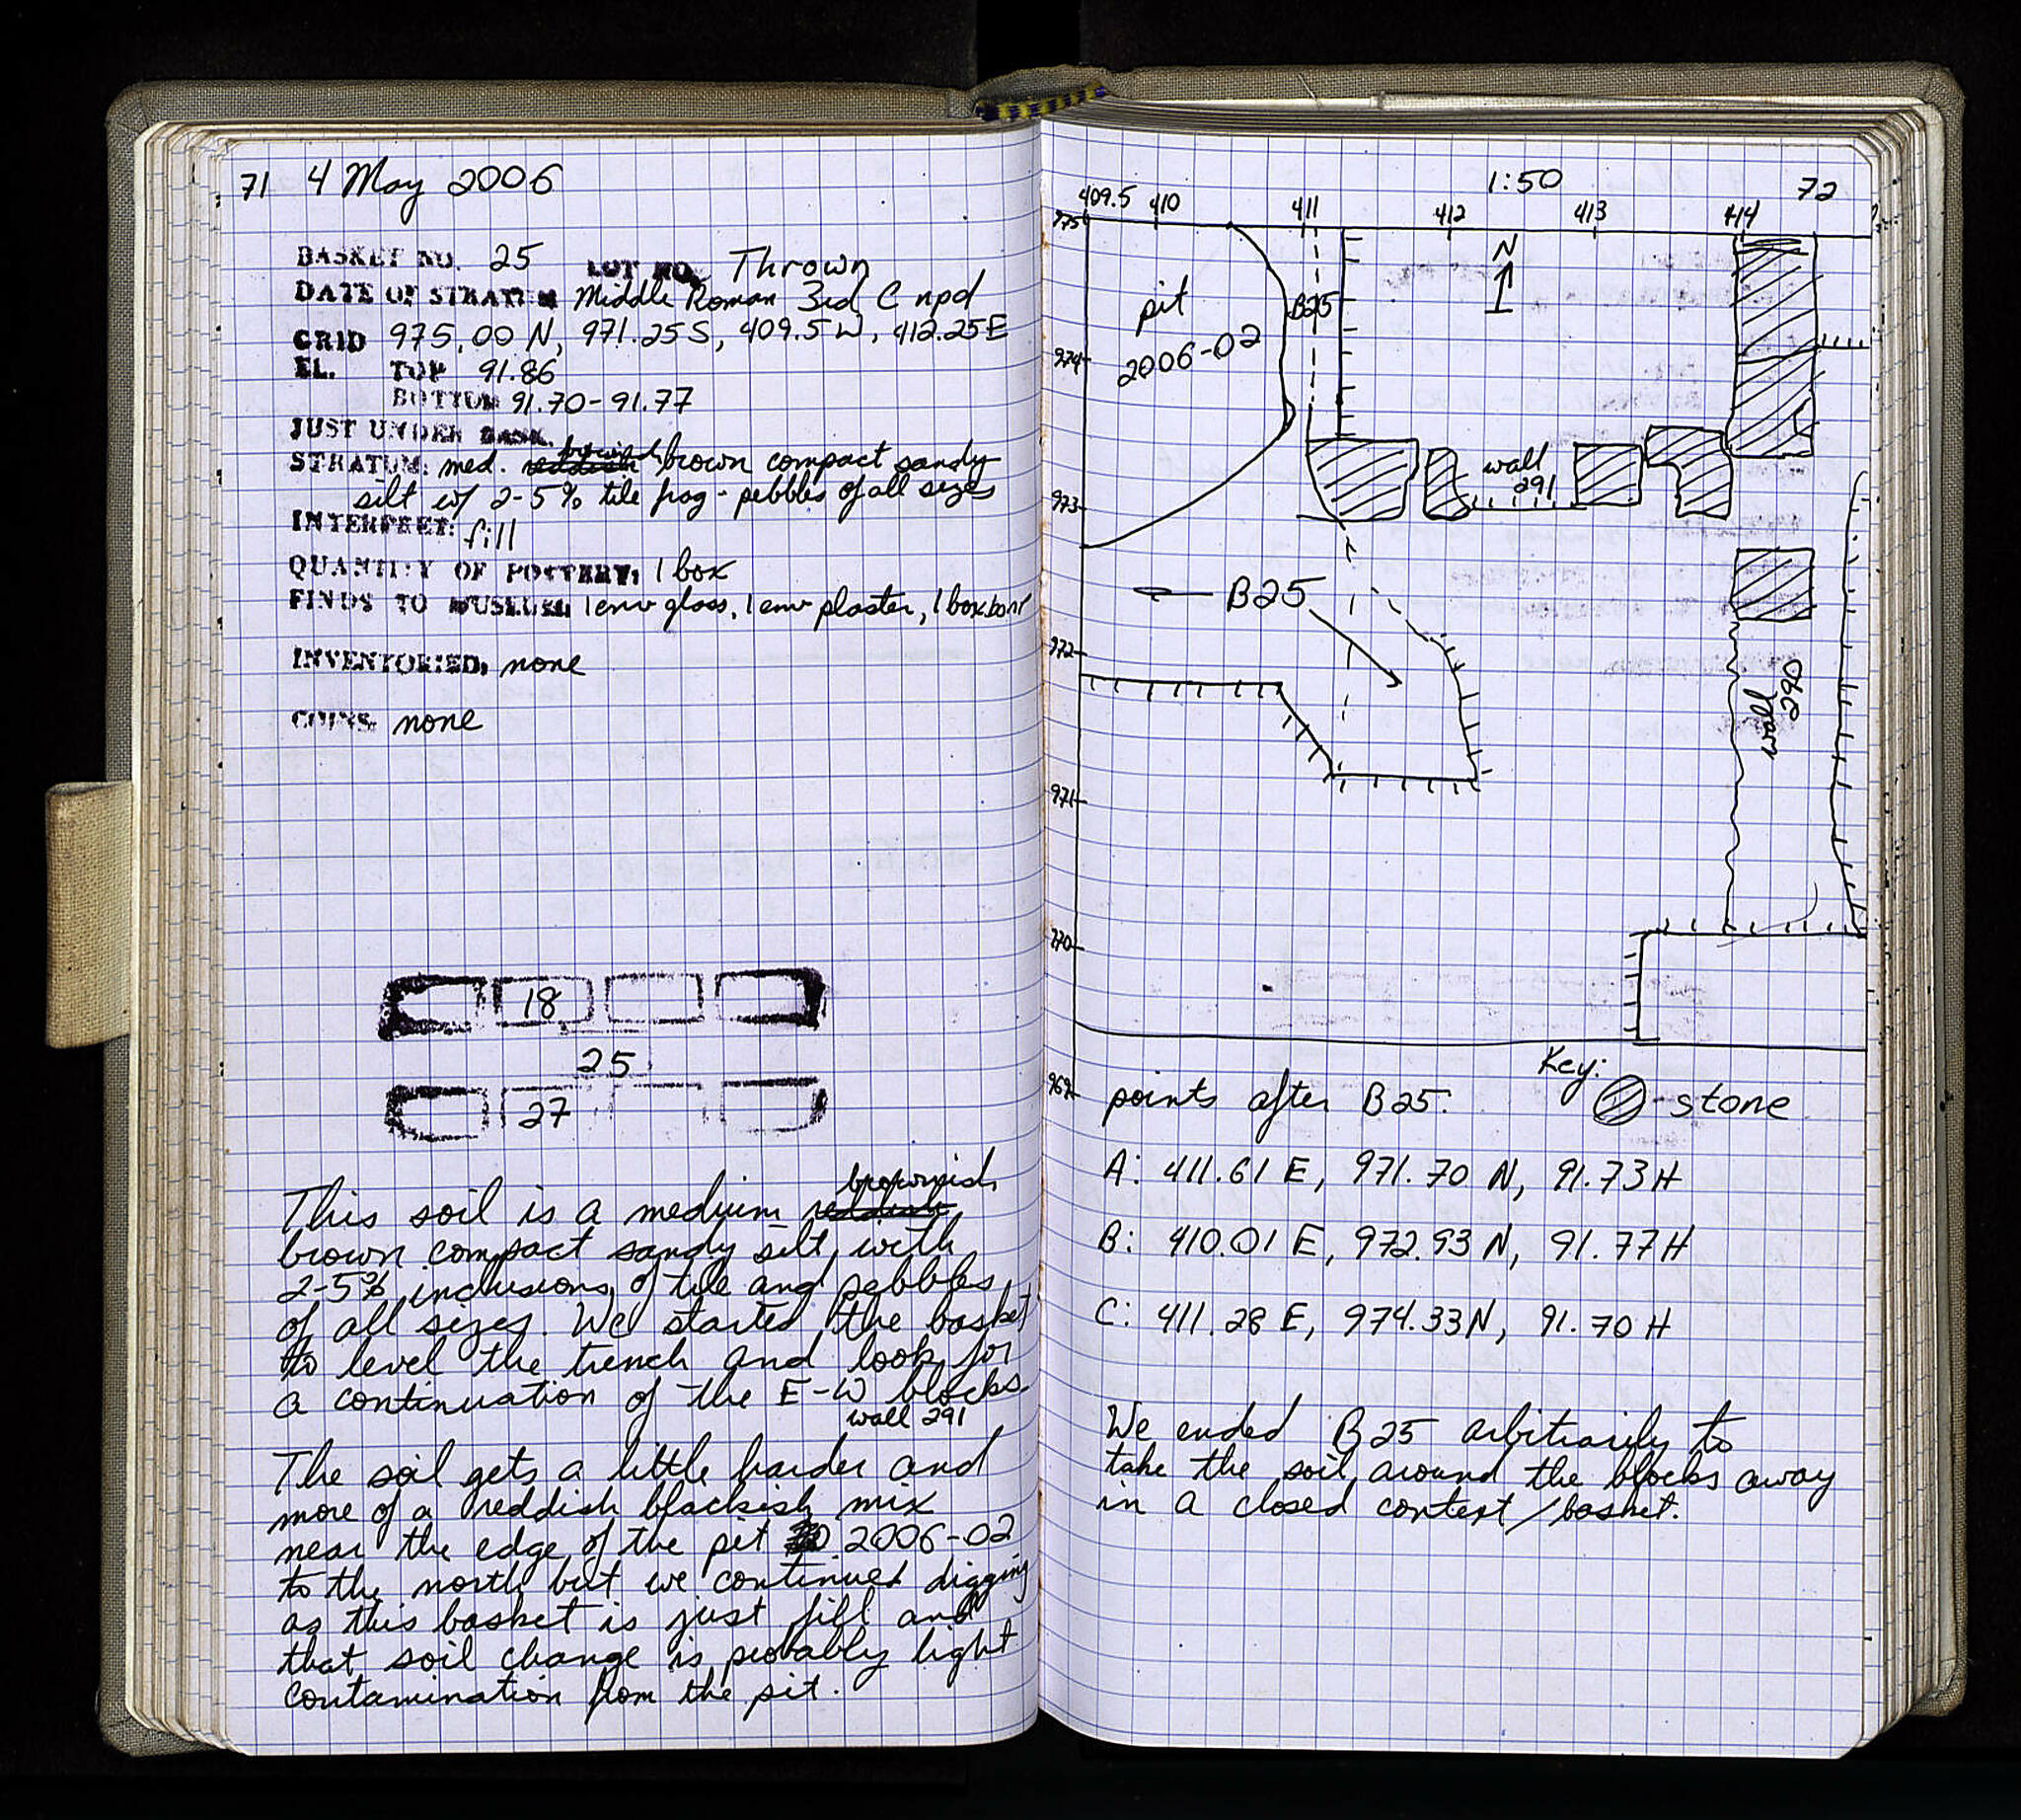 71 4 May 2006
BASKET NO. 25 LOT NO. Thrown
DATE OF STRATUM Middle Roman 3rd C npd
GRID 975.00 N, 971.25 S, 409.5 W, 412.25 E
EL. TOP 91.86
BOTTOM 91.70-91.77
JUST UNDER BASK.
brownish
STRATUM: med. reddish brown compact sandy
silt w/ 2-5% tile frag - pebbles of all sizes
INTERPRET: fill
QUANTITY OF POTTERY: 1 box
FINDS TO MUSEUM: 1 env glass, 1 env plaster, 1 box bone
INVENTORIED: none
COINS: none
18
25
27
brownish
This soil is a medium reddish
brown compact sandy silt with
2-5% inclusions of tile and pebbles
of all sizes. We started the basket
to level the trench and look for
a continuation of the E-W blocks
wall 291
The soil gets a little harder and
more of a reddish blackish mix
near the edge of the pit 2006-02
to the north but we continued digging
as this basket is just fill and
that soil change is probably light
contamination from the pit.
1:50 72
409.5 410 411 412 413 414
975
N
pit
2006-02
B25
974
wall
291
973
B25
972
wall
290
971
970
969
Key:
points after B25: - stone
A: 411.61 E, 971.70 N, 91.73 H
B: 410.01 E, 972.93 N, 91.77 H
C: 411.28 E, 974.33 N, 91.70 H
We ended B25 arbitrarily to
take the soil around the blocks away
in a closed context/basket.